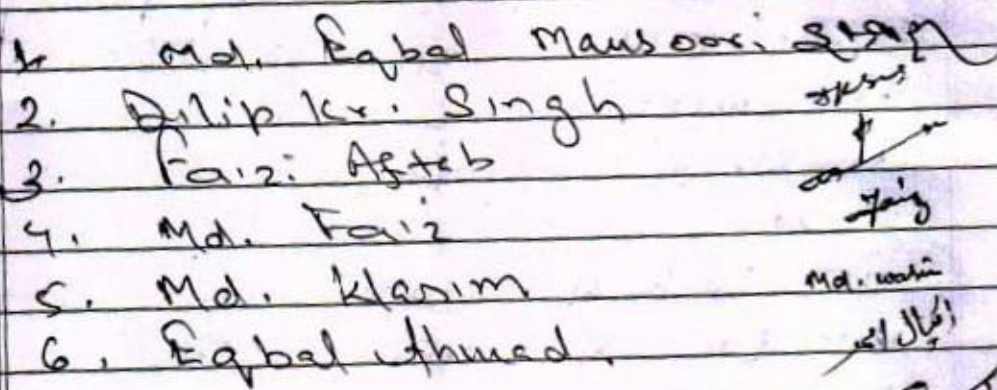 1. Md. Eqbal Mansoori
2. Dilip Kr. Singh
3. Faizi Aftab
4. Md. Faiz Faiz
5. Md. Wasim Md. Wasim
6. Eqbal Ahmad. اقبال